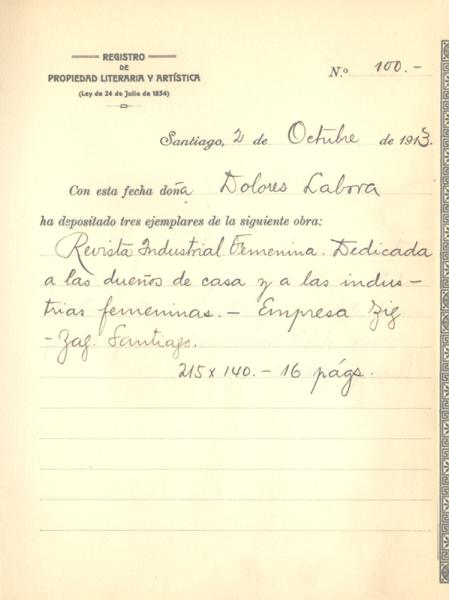 REGISTRO
DE
PROPIEDAD LITERARIA Y ARTÍSTICA
(Ley de 24 de Julio de 1834)
N.º 100.-
Santiago, 2 de Octubre de 1913.
Con esta fecha doña Dolores Labora
ha depositado tres ejemplares de la siguiente obra:
Revista Industrial Femenina. Dedicada
a las dueños de casa y a las indus-
trias femeninas. - Empresa Zig
-Zag. Santiago.
215 x 140. - 16 págs.